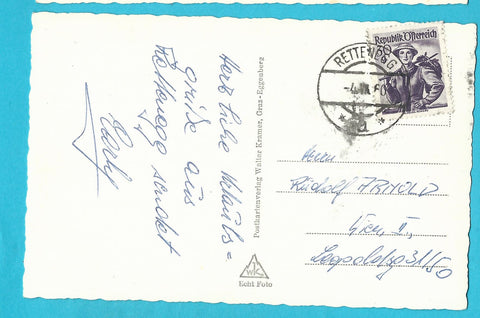 Herzliche Urlaubs=
grüße aus
Rettenegg sendet
Postkartenverlag Walter Kramer, Graz-Eggenberg
WK
Echt Foto
Republik Österreich
RETTENEGG
Herrn
Rudolf ARNOLD
Wien, II.,
31/50